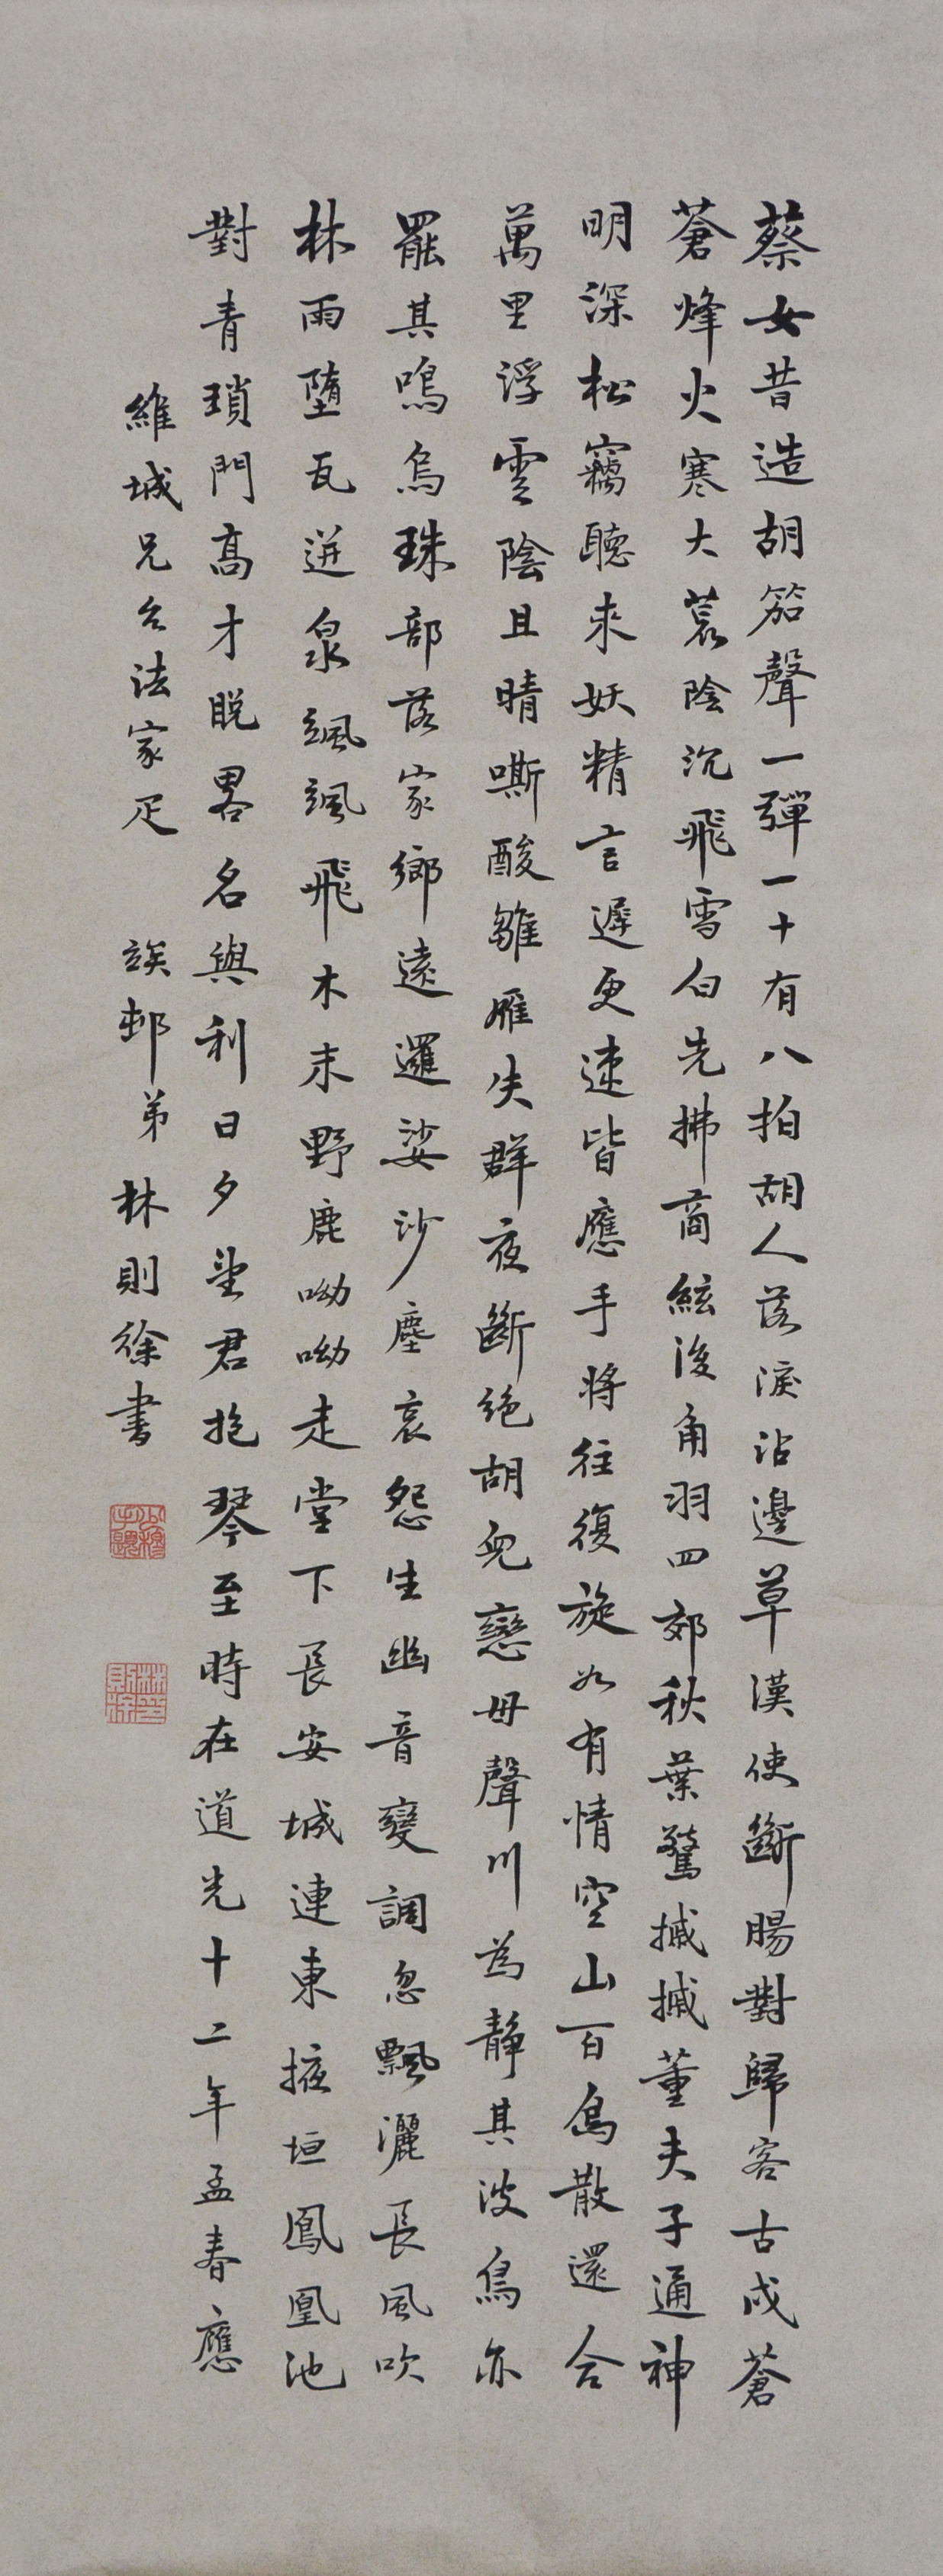 蔡女昔造胡笳聲一彈一十有八拍胡人落淚沾邊草漢使斷腸對歸客古戍蒼
蒼烽火寒大荒陰沉飛雪白先拂商絃後角羽四郊秋葉驚摵摵董夫子通神
明深松竊聽來妖精言遲更速皆應手將往復旋如有情空山百鳥散還合
萬里浮雲陰且晴嘶酸雛雁失群夜斷絕胡兒戀母聲川為靜其波鳥亦
罷其鳴烏珠部落家鄉遠邏娑沙塵哀怨生幽音變調忽飄灑長風吹
林雨墮瓦迸泉颯颯飛木末野鹿呦呦走堂下長安城連東掖垣鳳凰池
對青瑣門高才脫畧名與利日夕望君抱琴至時在道光十二年孟春應
維城兄台法家疋 竢邨弟林則徐書
林則徐印